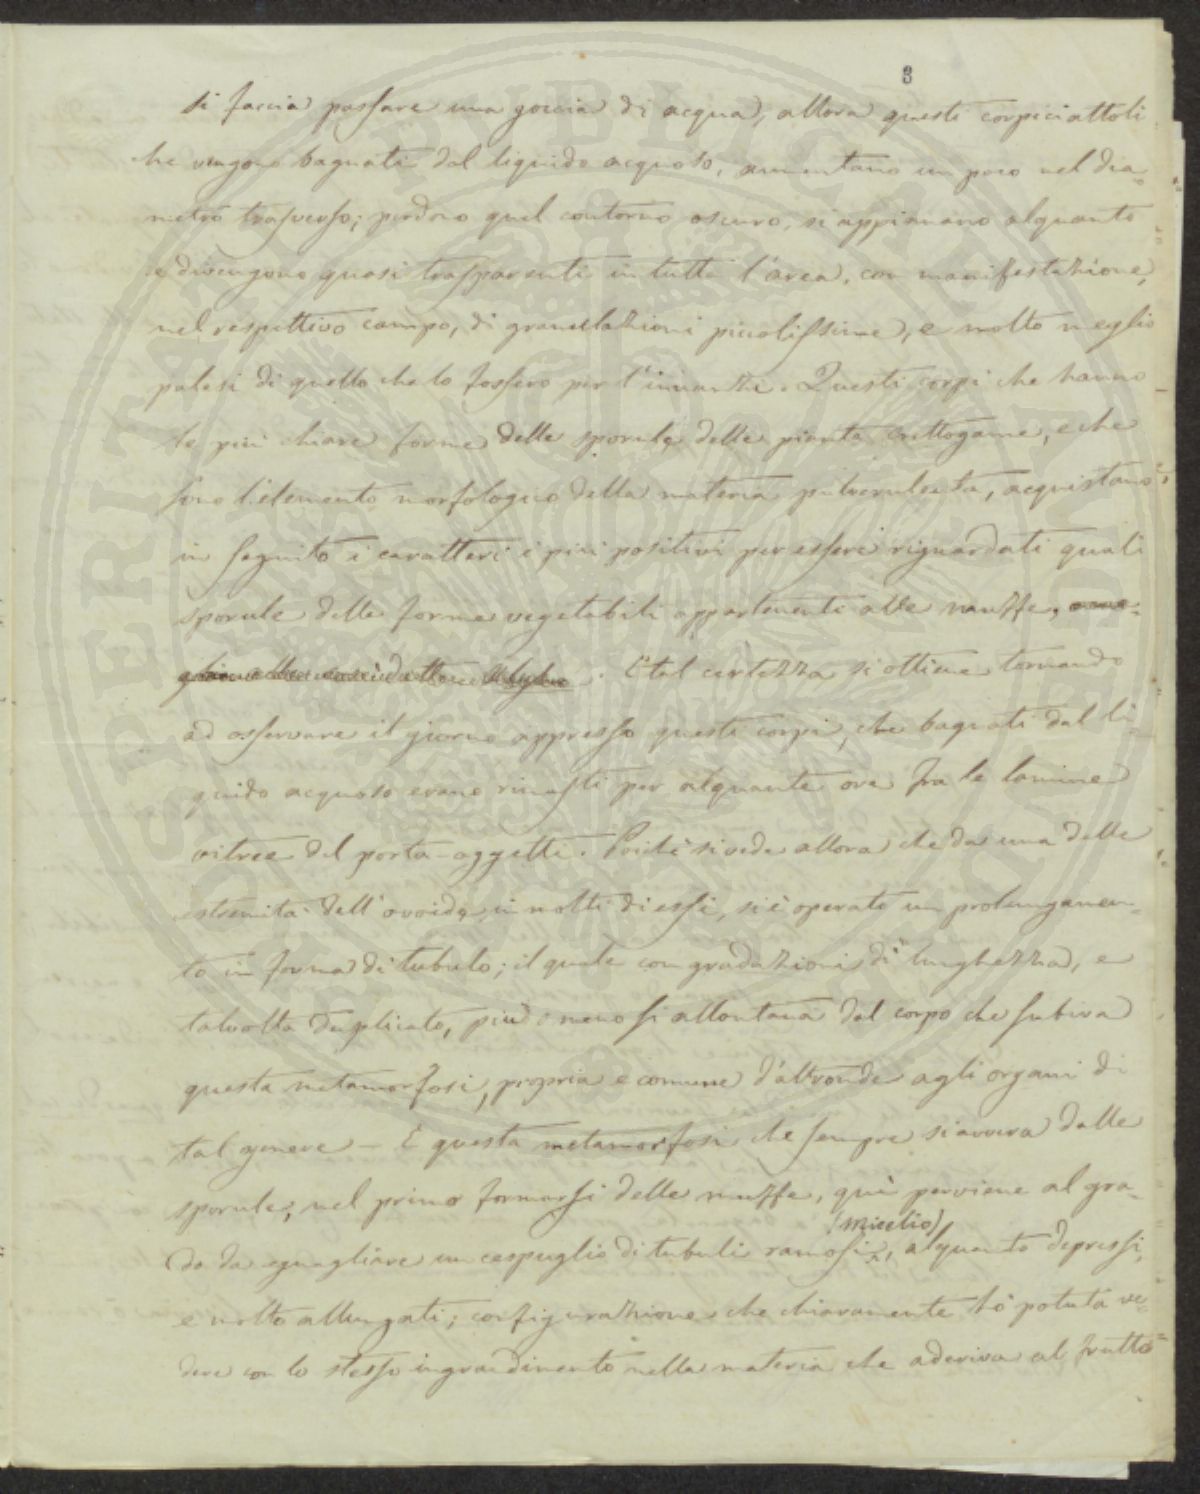 3
si faccia passare una goccia di acqua, allora questi corpiciattoli
che vengono bagnati dal liquido acquoso, aumentano un poco nel dia-
metro trasverso; perdono quel contorno oscuro, si appianano alquanto
e divengono quasi trasparenti in tutta l'area, con manifestazione,
nel respettivo campo, di granulazioni piccolissime, e molto meglio
palesi di quello che lo fossero per l'innanzi. Questi corpi che hanno
le più chiare forme delle sporule delle piante crittogame, e che
sono l'elemento morfologico della materia pulverulenta, acquistano
in seguito i caratteri i più positivi per essere riguardati quali
sporule delle forme vegetabili appartenenti alle muffe,
. E tal certezza si ottiene tornando
ad osservare il giorno appresso questi corpi, che bagnati dal li-
quido acquoso erano rimasti per alquante ore fra le lamine
vitree del porta-oggetti. Poichè si vede allora che da una delle
estremità dell'ovoide, in molti di essi, si è operato un prolungamen-
to in forma di tubulo; il quale con gradazioni di lunghezza, e
talvolta duplicato, più o meno si allontana dal corpo che subiva
questa metamorfosi, propria e comune d'altronde agli organi di
tal genere — E questa metamorfosi che sempre si avvera dalle
sporule, nel primo formarsi delle muffe, quì perviene al gra-
(micelio)
do da eguagliare un cespuglio di tubuli ramosi, alquanto depressi,
e molto allungati; configurazione che chiaramente hò potuta ve-
dere con lo stesso ingrandimento nella materia che aderiva al frutto